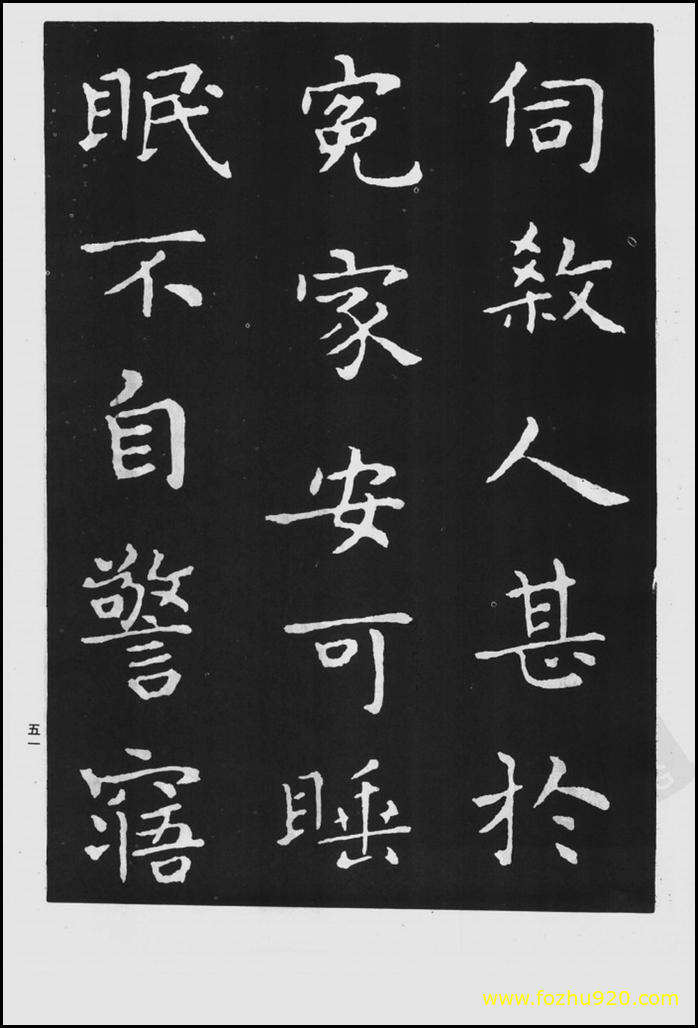 伺殺人甚於
寃家安可睡
眠不自警寤
五一
www.fozhu920.com